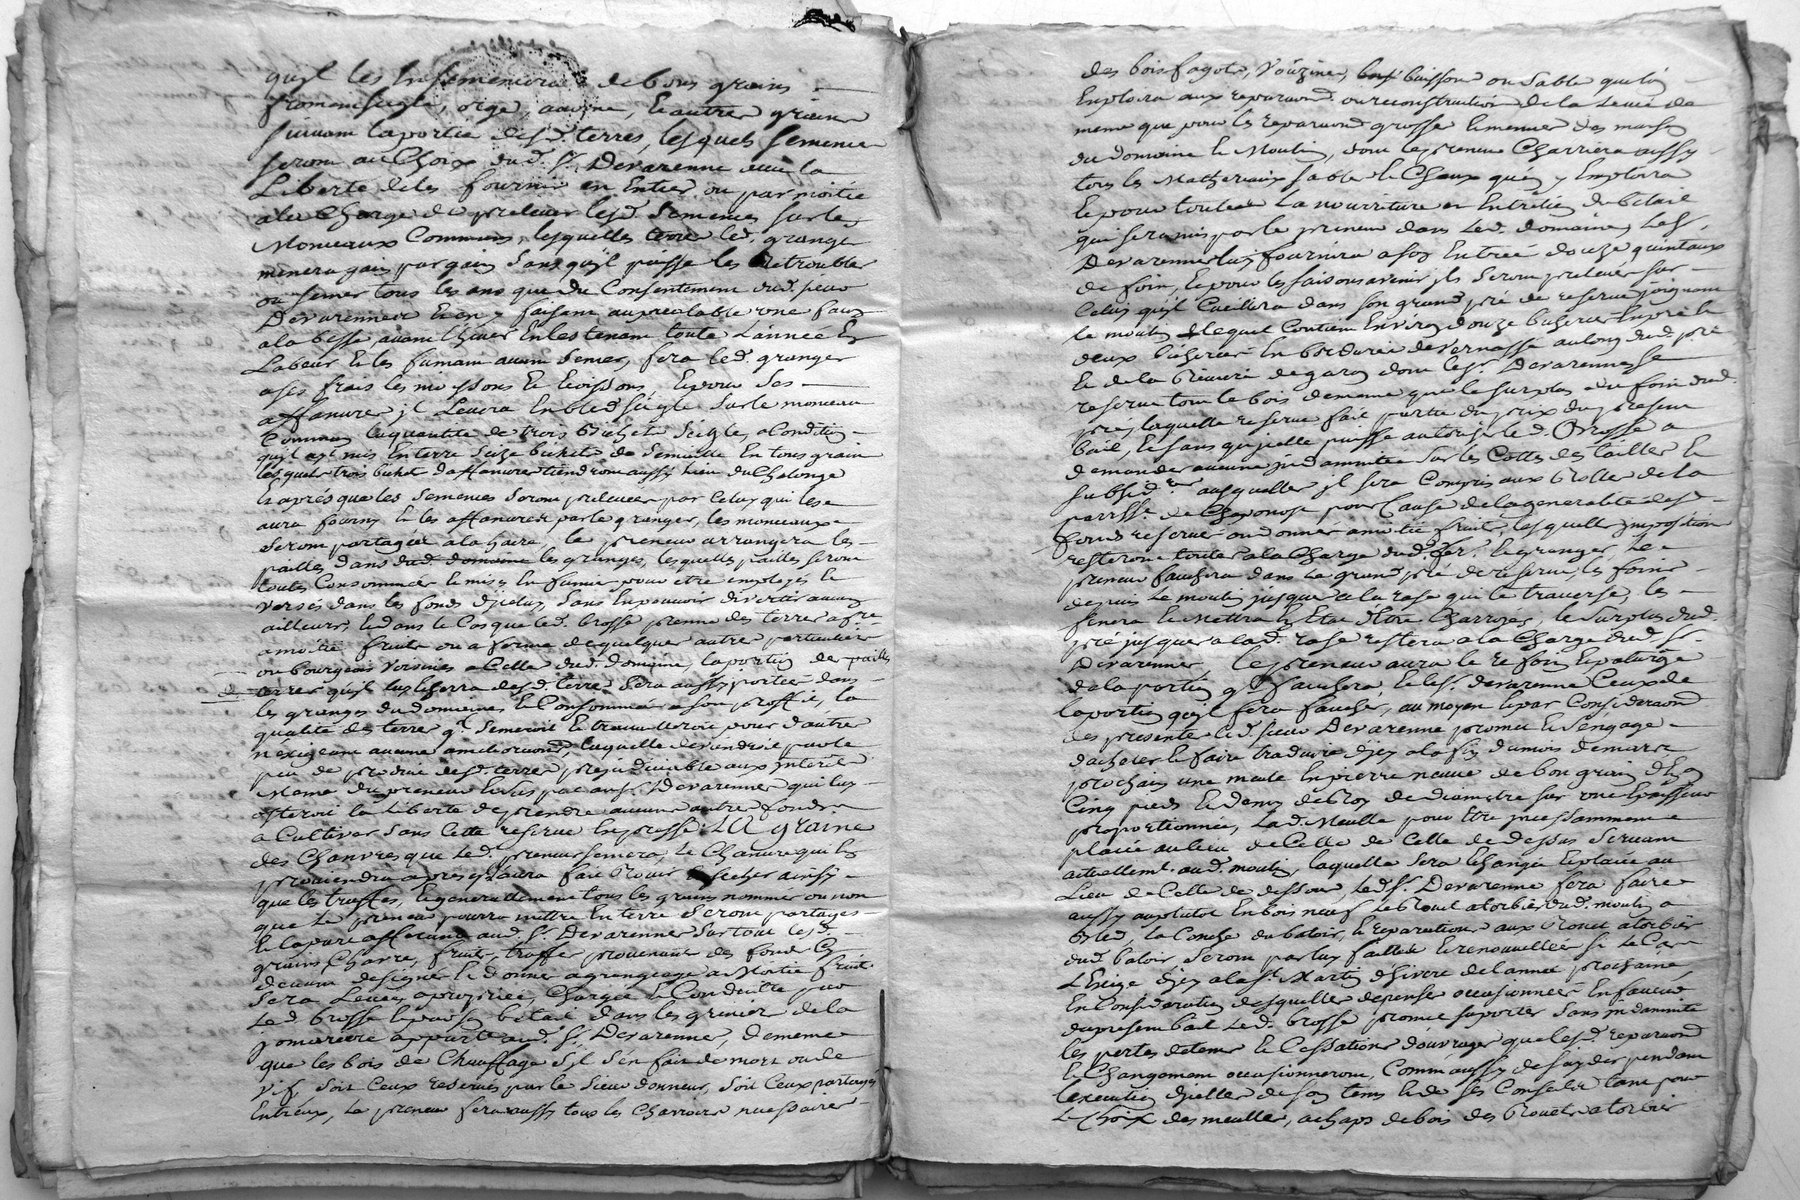 quyl les Ensemencera de bons grains
froment seigle, orge, avoine, & autres grains
suivant la portée desd. terres, lesquels semences
seront au Choix dud. Sr. Devarenne avec la
Liberté de les fournir en Entier ou par moitié
a la Charge de prelever lesd. semences sur les
Monceaux Communs, lesquelles led. granger
menera gain par gain sans quyl puisse les
ou semer tous les ans que du Consentement dud. sieur
Devarennes Et en y faisant au prealable une
a la besse avant lhiver En les tenant toute Lannée En
Labeur & les fumant avant semer, fera led. granger
a ses frais les moissons Et Et pour ses
affanures jl Levera En bled seigle sur le monceau
Commun la quantité de trois bichets seigle, a Condition
quyl ayt mis En terre seize bichets de semaille En tous grain
lesquels trois bichets daffanures tiendront aussy lieu du Chalonge
Et aprés que les semences seront prelevees par Celuy qui les
aura fourny & les affanures par le granger, les monceaux
seront partagés a la haire, le preneur arrangera les
pailles dans les granges, lesquelles pailles seront
toutes Consommées & mises En fumier pour etre employes &
versés dans les fonds djceluy, sans En pouvoir divertir aucun
ailleurs, & dans le Cas que led. brosse prenne des terres a
a moitié fruits ou a ferme de quelques autres particuliers
ou bourgeois Voisins a Celle dud. domaine, la portion des pailles
quyl desd. terres sera aussy portée dans
les granges du domaine, & Consommée a son proffit, la
qualité des terres ql. semeroit & travailleroit pour dautres
n'exigeant aucune amelioraõn, laquelle deviendroit par le
peu de produit desd. terres prejudiciable aux Interets
Meme du preneur & dud. Sr. Devarennes qui luy
osteroit la Liberté de prendre aucuns autres fonds
a Cultiver sans Cette reserve Expresse. LA graine
des Chanvres que led. preneur semera, le Chanvre qui En
proviendra aprés quyl aura fait rouir & secher ainsy
que les truffes, & generallement tous les grains nommés ou non
que le preneur pourra mettre En terre seront partagés
& la part afferante aud. Sr. Devarennes sur tout lesd.
grains, Chanvre, fruits, truffes provenants des fonds Cy
devant designés & donnés a grangeage a Moitié fruit
sera Levée, apropriée, Chargée & Conduitte par
led. brosse & par son bétail dans les greniers de la
appart. aud. Sr. Devarenne, de meme
que les bois de Chauffage syl sen fait de mort ou de
vif, soit Ceux reservés par le sieur donneur, soit Ceux partagés
Entr'eux, Le preneur fera aussy tous les Charrois necessaires
des bois fagots, Vouzines, buissons ou sable quelon
Emploira aux reparaõns ou reconstruction de la Levée de
meme que pour les reparaõns grosses & menues des maisons
du domaine & Moulin, dont le preneur Charriera aussy
tous les Matheriaux sable & Chaux quon y Emploira
& pour toutes La nourriture & Entretien du bétail
qui sera mis par le preneur dans led. domaine, Led. Sr.
Devarennes luy fournira a son Entrée douze quintaux
de foin, & pour les saisons avenir jls seront prelevés sur
Celuy quyl Cueillera dans son grand pré de reserve joignant
le moulin, lequel Contient Environ douze bicherées Compris
deux bicherées En bordure de vernasse au long dud. pré
& de la riviere de garon dont led. Sr. Devarennes se
reserve tout le bois de meme que le surplus du foin dud.
pré, laquelle reserve fait partie du prix du present
bail, & sans quyelle puisse autoriser led. Brosse a
demander aucune jndamnitée sur les Cottes des tailles &
subsid.res ausquelles jl sera Compris aux Rolles de la
parrsse. de Chaponost pour Cause de la generalité desd.
fonds reservés ou donnés a moitié fruit, lesquelles Imposition
resteront toutes a la Charge dud. granger, Le
preneur fauchera dans le grand pré de reserve, les foins
depuis Le moulin jusques a la rase qui le traverse, les
fenera & Mettra En Etat detre Charroyés, le surplus dud.
pré jusques a lad. rase restera a la Charge dud. Sr.
Devarennes, Le preneur aura le refoin & paturage
de la portion ql. fauchera, & led. Sr. devarenne Ceux de
la portion quyl fera faucher, au moyen & par Consideraõn
des presentes led. sieur Devarenne promet & sengage
dacheter & faire traduire djcy a la fin du mois de mars
prochain une meule En pierre neuve de bon grain den
Cinq pieds & demy de Roy de diametre sur une Epaisseur
proportionnée, Lad. Meulle pour être jncessamment
placée au lieu de Celle de dessus servant
actuellemt. aud. moulin, laquelle sera Changée & placée au
Lieu de Celle de dessous, Led. Sr. Devarenne fera faire
aussy au plutot En bois neuf le Rouet a torbier dud. moulin a
bled, la Conche du batoir, & reparations aux Rouet a torbier
dud. batoir seront par luy faittes & renouvellées si le Cas
L'Exige djcy a la St. Martin dhivers de l'année prochaine,
En Consideration desquelles depenses occasionnées En faveur
du present bail led. brosse promet suporter sans jndamnité
les pertes de tems & Cessations d'ouvrages que lesd. reparaõns
& Changement occasionneront, Comm'aussy de suyder pendant
l'execution dycelles de son tems & de ses Conseils tant pour
Le Choix des meulles, achaps de bois des Rouets a torbier